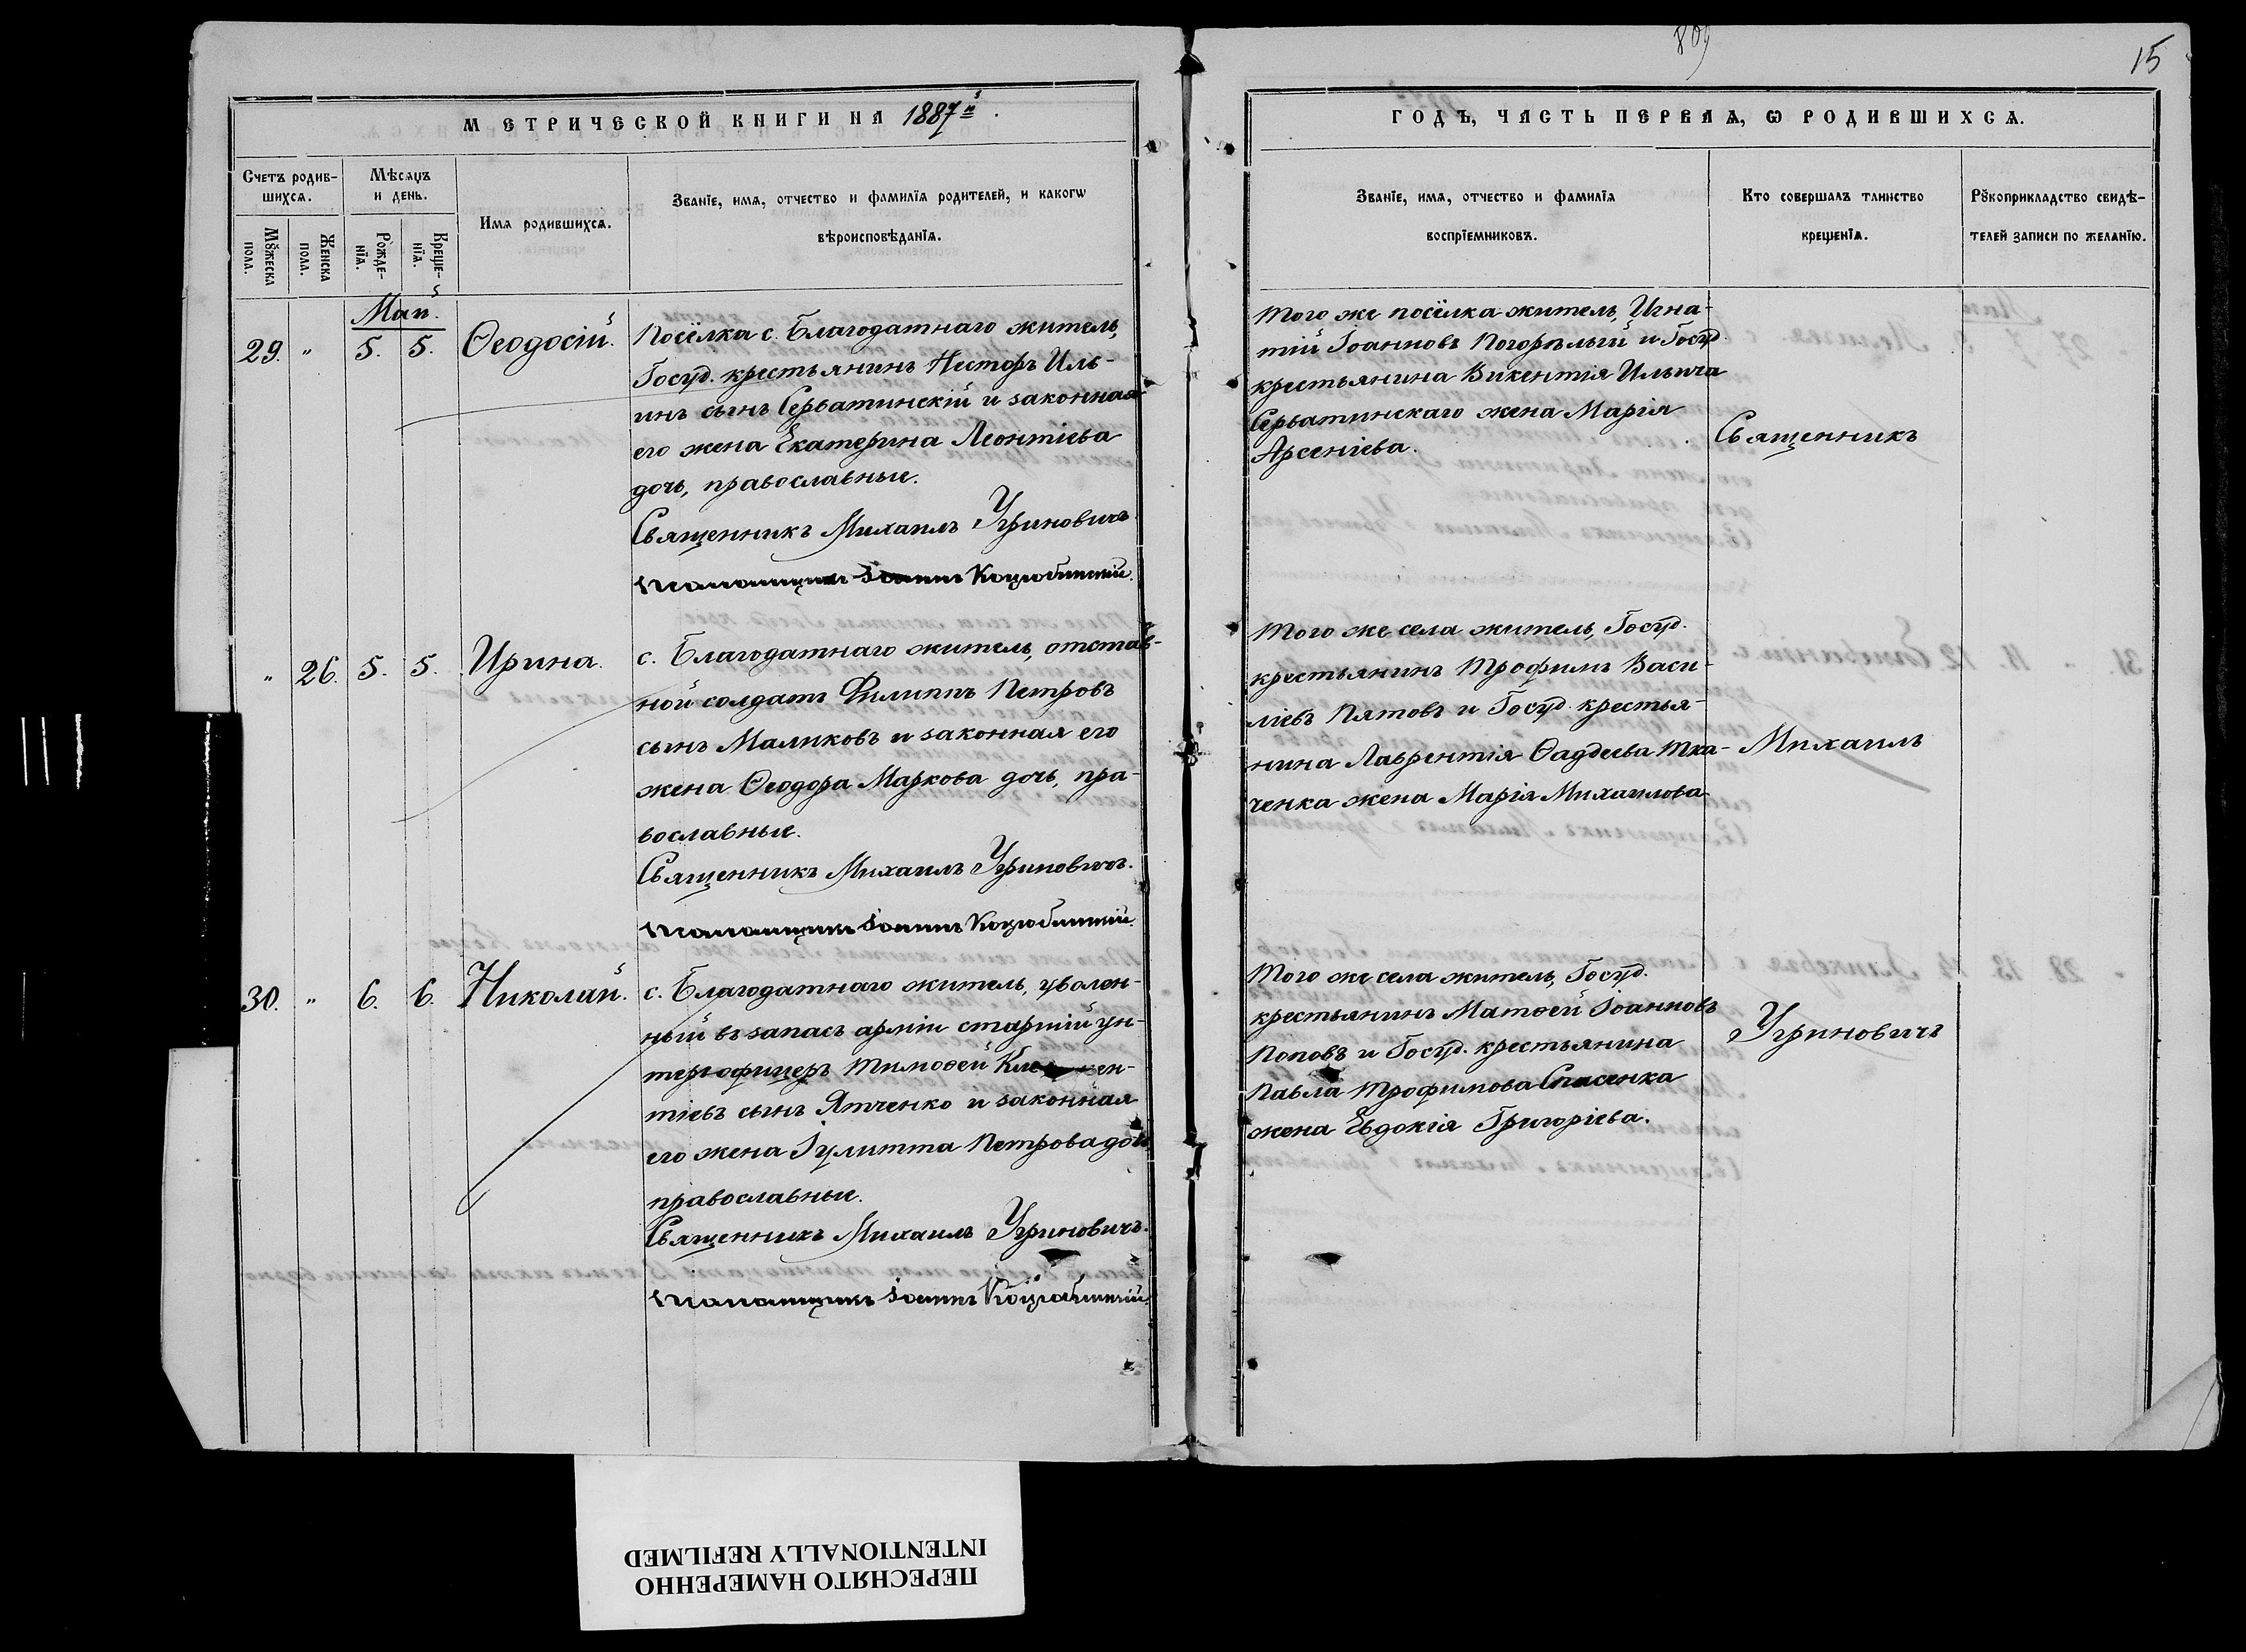 809
15
МЕТРИЧЕСКОЙ КНИГИ НА 1887й.
ГОДЪ, ЧАСТЬ ПЕРВАЯ, Ѡ РОДИВШИХСѦ.
Счетъ родив-
шихсѧ.
Мѣсяцъ
и день.
Мꙋжеска
пола.
Женска
пола.
Рожде-
нїѧ.
Креще-
нїѧ.
Имѧ родившихсѧ.
Званїе, имѧ, отчество и фамилїѧ родителей, и какогѡ
вѣроисповѣданїѧ.
Званїе, имѧ, отчество и фамилїѧ
воспрїемниковъ.
Кто совершалъ таинство
крещенїѧ.
Рꙋкоприкладство свидѣ-
телей записи по желанїю.
Май.
29. " 5. 5. Ѳеодосій.
Посёлка с. Благодатнаго житель,
Госуд. крестьянинъ Несторъ Иль-
инъ сынъ Серватинскій и законная
его жена Екатерина Леонтіева
дочь, православные.
Священникъ Михаилъ Угриновичъ
Іоаннъ Коцюбинскій.
Того же посёлка житель, Игна-
тій Іоанновъ Погорѣлый и Госуд.
крестьянина Викентія Ильича
Серватинскаго жена Марія
Арсеніева.
Священникъ
" 26. 5. 5. Ирина.
с. Благодатнаго житель, отстав-
ной солдатъ Филиппъ Петровъ
сынъ Маликовъ и законная его
жена Ѳеодора Маркова дочь, пра-
вославные.
Священникъ Михаилъ Угриновичъ.
Іоаннъ Коцюбинскій.
Того же села житель, Госуд.
крестьянинъ Трофимъ Васи-
ліевъ Пятовъ и Госуд. крестья-
нина Лаврентія Ѳаддеева Тка-
ченка жена Марія Михаилова
Михаилъ
30. " 6. 6. Николай.
с. Благодатнаго житель, уволен-
ный въ запасъ арміи старшій ун-
теръ-офицеръ Тимоѳей
тіевъ сынъ Ятченко и законная
его жена Іулитта Петрова дочь
православные.
Священникъ Михаилъ Угриновичъ.
Іоаннъ Коцюбинскій.
Того же села житель, Госуд.
крестьянинъ Матѳей Іоанновъ
Поповъ и Госуд. крестьянина
Павла Трофимова Спасенка
жена Евдокія Григоріева.
Угриновичъ
ПЕРЕСНЯТО НАМЕРЕННО
INTENTIONALLY REFILMED